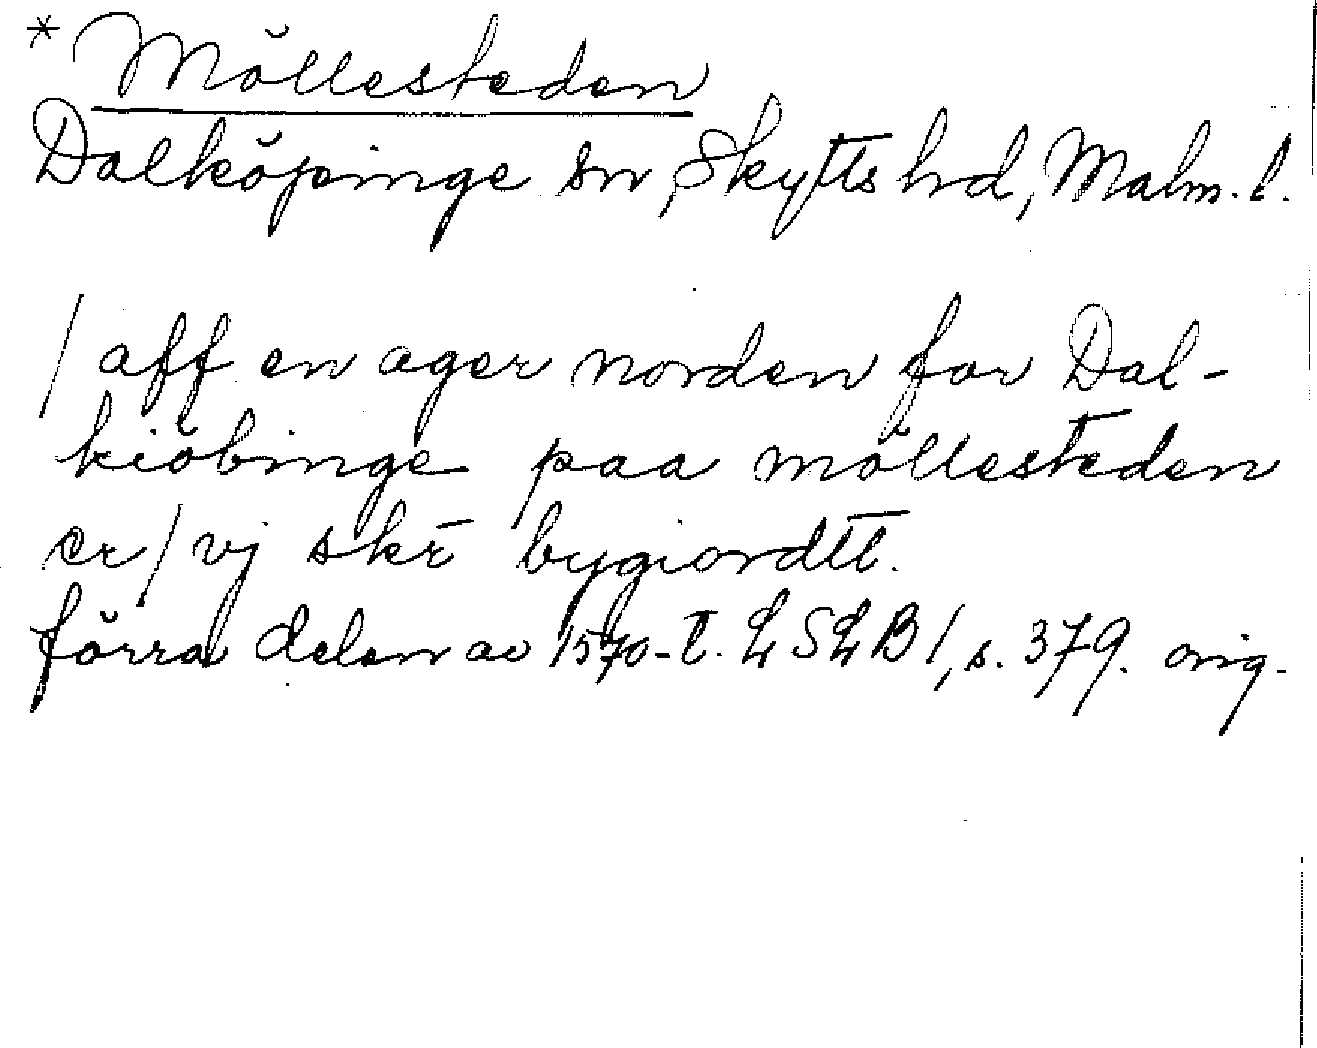 * Möllesteden
Dalköpinge sn, Skytts hd, Malm. l.
/ aff en ager norden for Dal-
kiöbinge paa möllesteden
er / vj skr̄ bygiordtt.
förra delen av 1570-t. LSLB 1, s. 379. orig.